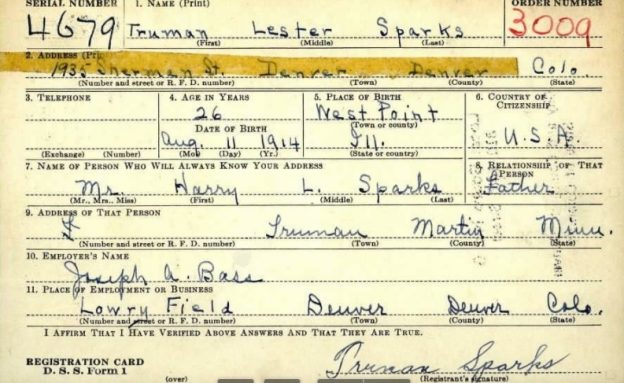 SERIAL NUMBER 1. NAME (Print) ORDER NUMBER
4679 Truman Lester Sparks 3009
(First) (Middle) (Last)
2. ADDRESS (Pri
1935 Sherman St. Denver Denver Colo.
(Number and street or R. F. D. number) (Town) (County) (State)
3. TELEPHONE 4. AGE IN YEARS 5. PLACE OF BIRTH 6. COUNTRY OF
CITIZENSHIP
26 West Point
DATE OF BIRTH (Town or county)
Aug. 11 1914 Ill. U.S.A.
(Exchange) (Number) (Mo.) (Day) (Yr.) (State or country)
7. NAME OF PERSON WHO WILL ALWAYS KNOW YOUR ADDRESS 8. RELATIONSHIP OF THAT
PERSON
Mr. Harry L. Sparks Father
(Mr., Mrs., Miss) (First) (Middle) (Last)
9. ADDRESS OF THAT PERSON
Truman Martin Minn.
(Number and street or R. F. D. number) (Town) (County) (State)
10. EMPLOYER'S NAME
Joseph A. Bass
11. PLACE OF EMPLOYMENT OR BUSINESS
Lowry Field Denver Denver Colo.
(Number and street or R. F. D. number) (Town) (County) (State)
I AFFIRM THAT I HAVE VERIFIED ABOVE ANSWERS AND THAT THEY ARE TRUE.
REGISTRATION CARD
D. S. S. Form 1 Truman Sparks
(over) (Registrant's signature)